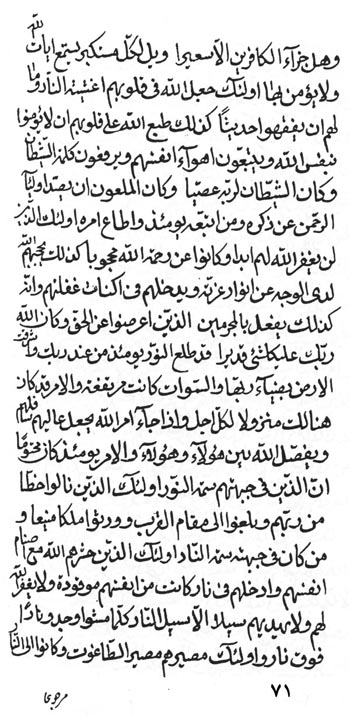 وهل جزآء الكافرين الّا سعيرا ويل لكلّ مستكبر يستمع ايات الله
ولا يؤمن بها اولئك جعل الله فى قلوبهم اغشية النّار وما
لهم ان يفقهوا حديثاً كذلك طبع الله على قلوبهم ان لا يؤمنوا
بنفس الله ويتّبعون اهوآء انفسهم ويرفعون كلمة الشّيطان
وكان الشّيطان لربّه عصيّا وكان الملعون ان يصدّ اوليآء
الرّحمن عن ذكره ومن اتّبعه يومئذ واطاع امره اولئك الّذين
لن يغفر الله لهم ابدا وكانوا عن رحمة الله محجوبا كذلك يحجبهم الله
لدى الوجه عن انوار عزّته ويدخلهم فى اكنات غفلتهم والله
كذلك يفعل بالمجرمين الّذين اعرضوا عن الحقّ وكان الله
ربّك على كلّشئ قديرا قد طلع النّور يومئذ من عند ربّك واشرقت
الارض بضيآء ربّها والسّموات كانت مرتفعة والامر قد كان
هنالك منزولا لكلّ اجل واذا جآء امر الله يجعل عاليهم سافلهم
ويفصّل الله بين هؤلآء وهؤلآء والامر يومئذ كان مختوما
انّ الّذين فى جبهتهم سمة النّور اولئك الّذين نالوا حظّا
من ربّهم وبلغوا الى مقام القرب وورثوا ملكا منيعا و
من كان فى جبهته سمة النّار اولئك الّذين حشرهم الله مع اصنام
انفسهم وادخلهم فى نار كانت من انفسهم موقودة ولا يغفر الله
لهم ولا يهديهم سبيلا الّا سبيل النّار كلّما مستوا وجدوا نارا
فوق نار واولئك مصيرهم مصير الطّاغوت وكانوا الى النّار
٧١
مرجوعا